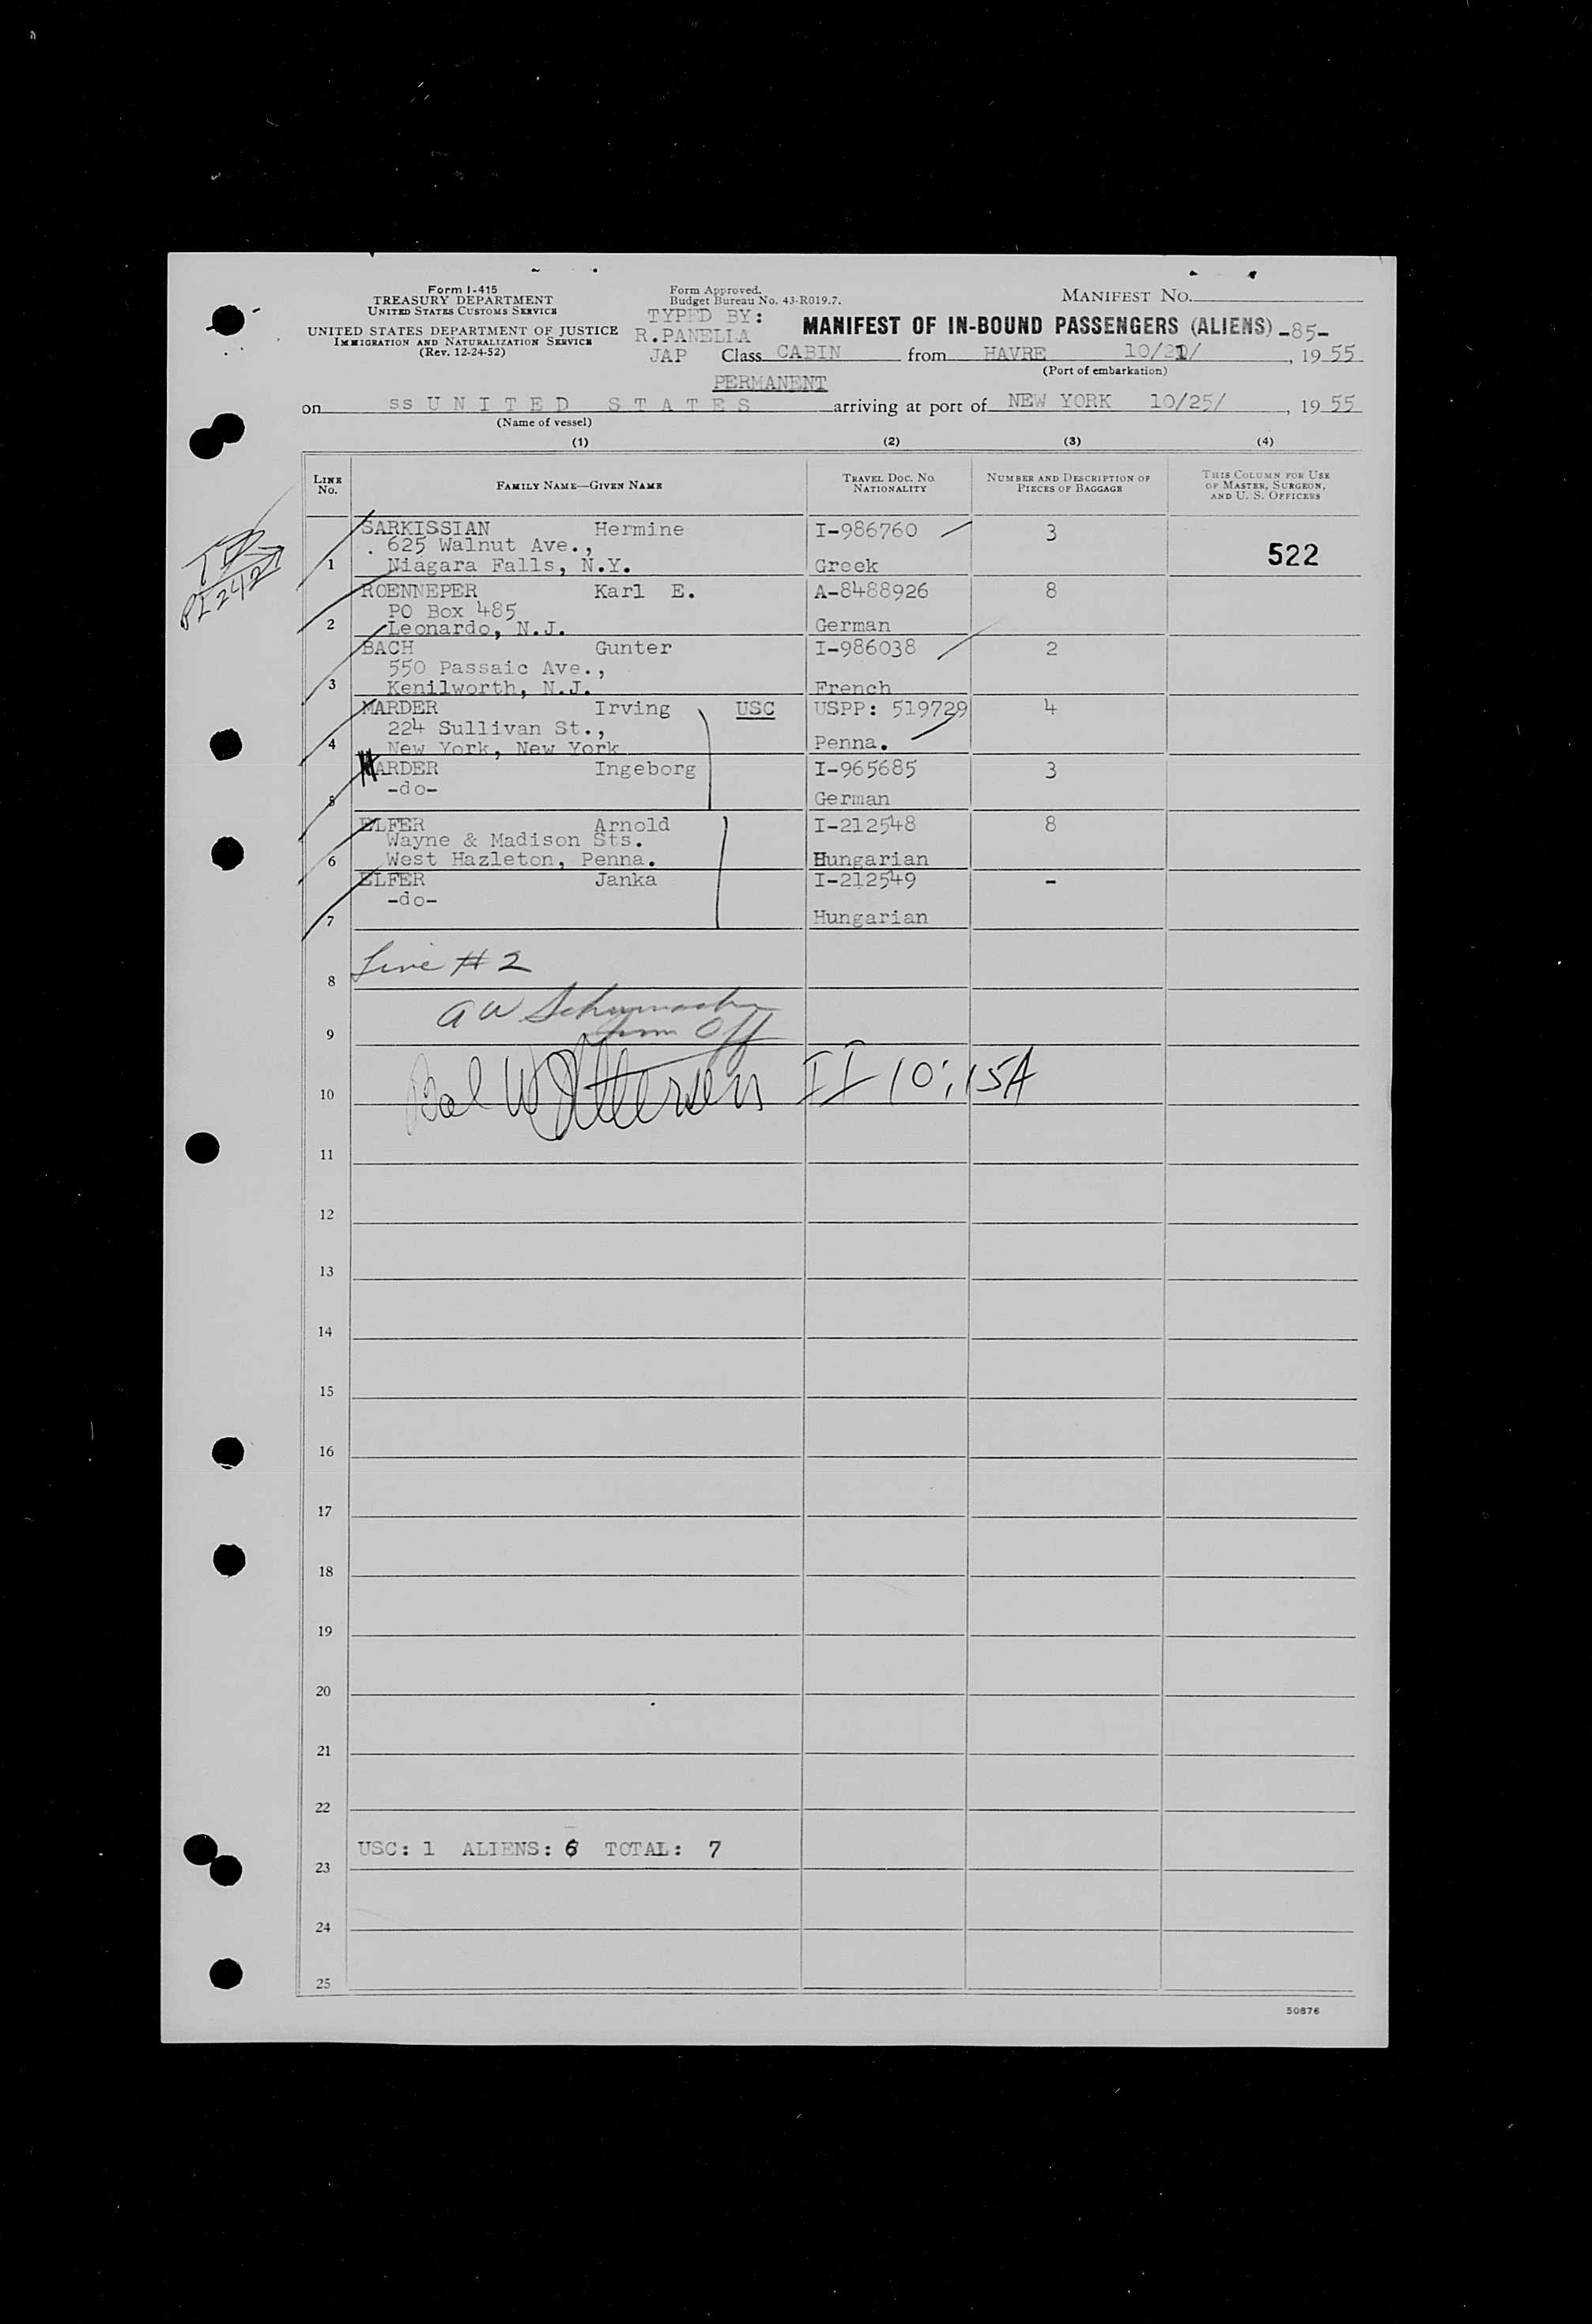 Form I-415
TREASURY DEPARTMENT
UNITED STATES CUSTOMS SERVICE
UNITED STATES DEPARTMENT OF JUSTICE
IMMIGRATION AND NATURALIZATION SERVICE
(Rev. 12-24-52)
Form Approved.
Budget Bureau No. 43-R019.7.
TYPED BY:
R.PANELLA
JAP
MANIFEST NO.
MANIFEST OF IN-BOUND PASSENGERS (ALIENS) -85-
Class CABIN from HAVRE 10/21/, 19 55
(Port of embarkation)
PERMANENT
on ss U N I T E D S T A T E S arriving at port of NEW YORK 10/25/, 19 55
(Name of vessel)
(1) (2) (3) (4)
LINE No. FAMILY NAME—GIVEN NAME TRAVEL DOC. NO. NATIONALITY NUMBER AND DESCRIPTION OF PIECES OF BAGGAGE THIS COLUMN FOR USE OF MASTER, SURGEON, AND U. S. OFFICERS
SARKISSIAN Hermine I-986760 3
625 Walnut Ave.,
1 Niagara Falls, N.Y. Greek 522
ROENNEPER Karl E. A-8488926 8
PO Box 485
2 Leonardo, N.J. German
BACH Gunter I-986038 2
550 Passaic Ave.,
3 Kenilworth, N.J. French
MARDER Irving USC USPP: 519729 4
224 Sullivan St.,
4 New York, New York Penna.
MARDER Ingeborg I-965685 3
-do-
5 German
ELFER Arnold I-212548 8
Wayne & Madison Sts.
6 West Hazleton, Penna. Hungarian
ELFER Janka I-212549 -
-do-
7 Hungarian
Line # 2
8
A W Schumacher
Imm Off
9
II 10:15A
10
11
12
13
14
15
16
17
18
19
20
21
22
USC: 1 ALIENS: 6 TOTAL: 7
23
24
25
50876